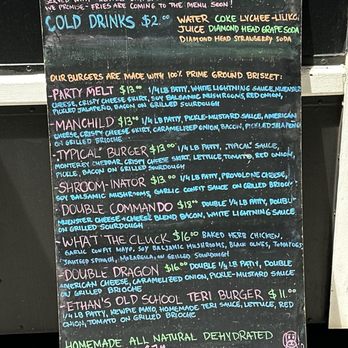 WE PROMISE - FRIES ARE COMING TO THE MENU SOON!
COLD DRINKS $2.00 WATER COKE LYCHEE-LILIKOI
JUICE DIAMOND HEAD GRAPE SODA
DIAMOND HEAD STRAWBERRY SODA
OUR BURGERS ARE MADE WITH 100% PRIME GROUND BRISKET:
-PARTY MELT $13.00 1/4 LB PATTY, WHITE LIGHTNING SAUCE, MUENSTER
CHEESE, CRISPY CHEESE SKIRT, SOY BALSAMIC MUSHROOMS, RED ONION,
PICKLED JALAPEÑO, BACON ON GRILLED SOURDOUGH
-MANCHILD $13.00 1/4 LB PATTY, PICKLE-MUSTARD SAUCE, AMERICAN
CHEESE, CRISPY CHEESE SKIRT, CARAMELIZED ONION, BACON, PICKLED JALAPEÑO
ON GRILLED BRIOCHE
-"TYPICAL" BURGER $13.00 1/4 LB PATTY, "TYPICAL" SAUCE,
MONTEREY CHEDDAR, CRISPY CHEESE SKIRT, LETTUCE, TOMATO, RED ONION,
PICKLE, BACON ON GRILLED SOURDOUGH
-SHROOM-INATOR $13.00 1/4 LB PATTY, PROVOLONE CHEESE,
SOY BALSAMIC MUSHROOMS, GARLIC CONFIT SAUCE ON GRILLED BRIOCHE
-DOUBLE COMMANDO $18.00 DOUBLE 1/4 LB PATTY, DOUBLE
MUENSTER CHEESE + CHEESE BLEND, BACON, WHITE LIGHTNING SAUCE,
ON GRILLED SOURDOUGH
-WHAT THE CLUCK $16.00 BAKED HERB CHICKEN,
GARLIC CONFIT MAYO, SOY BALSAMIC MUSHROOMS, BLACK OLIVES, TOMATOES,
SAUTEED SPINACH, MOZARELLA, ON GRILLED SOURDOUGH
-DOUBLE DRAGON $16.00 DOUBLE 1/4 LB PATTY, DOUBLE
AMERICAN CHEESE, CARAMELIZED ONION, PICKLE-MUSTARD SAUCE
ON GRILLED BRIOCHE
-ETHAN'S OLD SCHOOL TERI BURGER $11.00
1/4 LB PATTY, MAYO, HOMEMADE TERI SAUCE, LETTUCE, RED
ONION, TOMATO ON GRILLED BRIOCHE
HOMEMADE ALL NATURAL DEHYDRATED